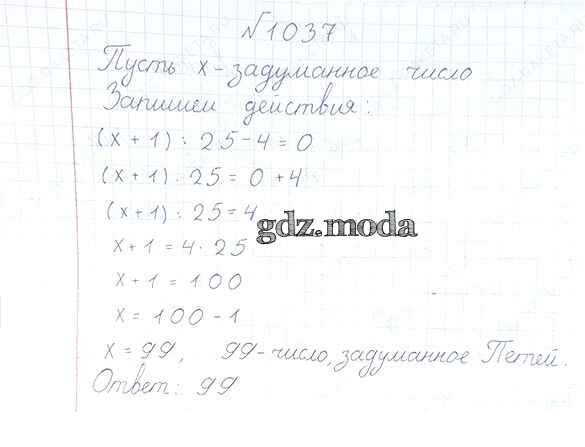 №1037
Пусть x - задуманное число
Запишем действия:
(x + 1) : 25 - 4 = 0
(x + 1) : 25 = 0 + 4
(x + 1) : 25 = 4
gdz.moda
x + 1 = 4 · 25
x + 1 = 100
x = 100 - 1
x = 99, 99 - число, задуманное Петей.
Ответ: 99